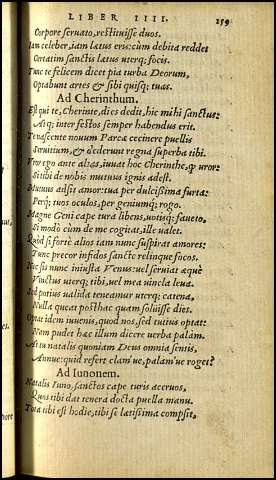 LIBER IIII. 159
Corpore seruato, restituisse duos.
Iam celeber, iam latus eris: cum debita reddet
Certatim sanctis latus uterq; focis.
Tunc te felicem dicet pia turba Deorum,
Optabunt artes & sibi quisq; tuas.
Ad Cherinthum.
Est qui te, Cherinte, dies dedit, hic mihi sanctus:
Atq; inter festos semper habendus erit.
Te nascente nouum Parcæ cecinere puellis
Seruitium, & dederunt regna superba tibi.
Vror ego ante alias, iuuat hoc Cherinthe, q uror:
Si tibi de nobis mutuus ignis adest.
Mutuus adsit amor: tua per dulcissima furta:
Perq; tuos oculos, per geniumq; rogo.
Magne Geni cape tura libens, uotisq; faueto.
Si modo cùm de me cogitat, ille ualet.
Quòd si fortè alios iam nunc suspirat amores:
Tunc precor infidos sancte relinque focos.
Nec sis nunc iniusta Venus: uel seruiat æquè
Vinctus uterq; tibi, uel mea uincla leua.
Sed potius ualida teneamur uterq; catena,
Nulla queat posthac quam soluisse dies.
Optat idem iuuenis, quod nos, sed tutius optat:
Nam pudet hæc illum dicere uerba palàm.
At tu natalis quoniam Deus omnia sentis,
Annue: quid refert clam'ue, palàm'ue roget?
Ad Iunonem.
Natalis Iuno, sanctos cape turis aceruos,
Quos tibi dat tenera docta puella manu.
Tota tibi est hodie, tibi se lætissima compsit,